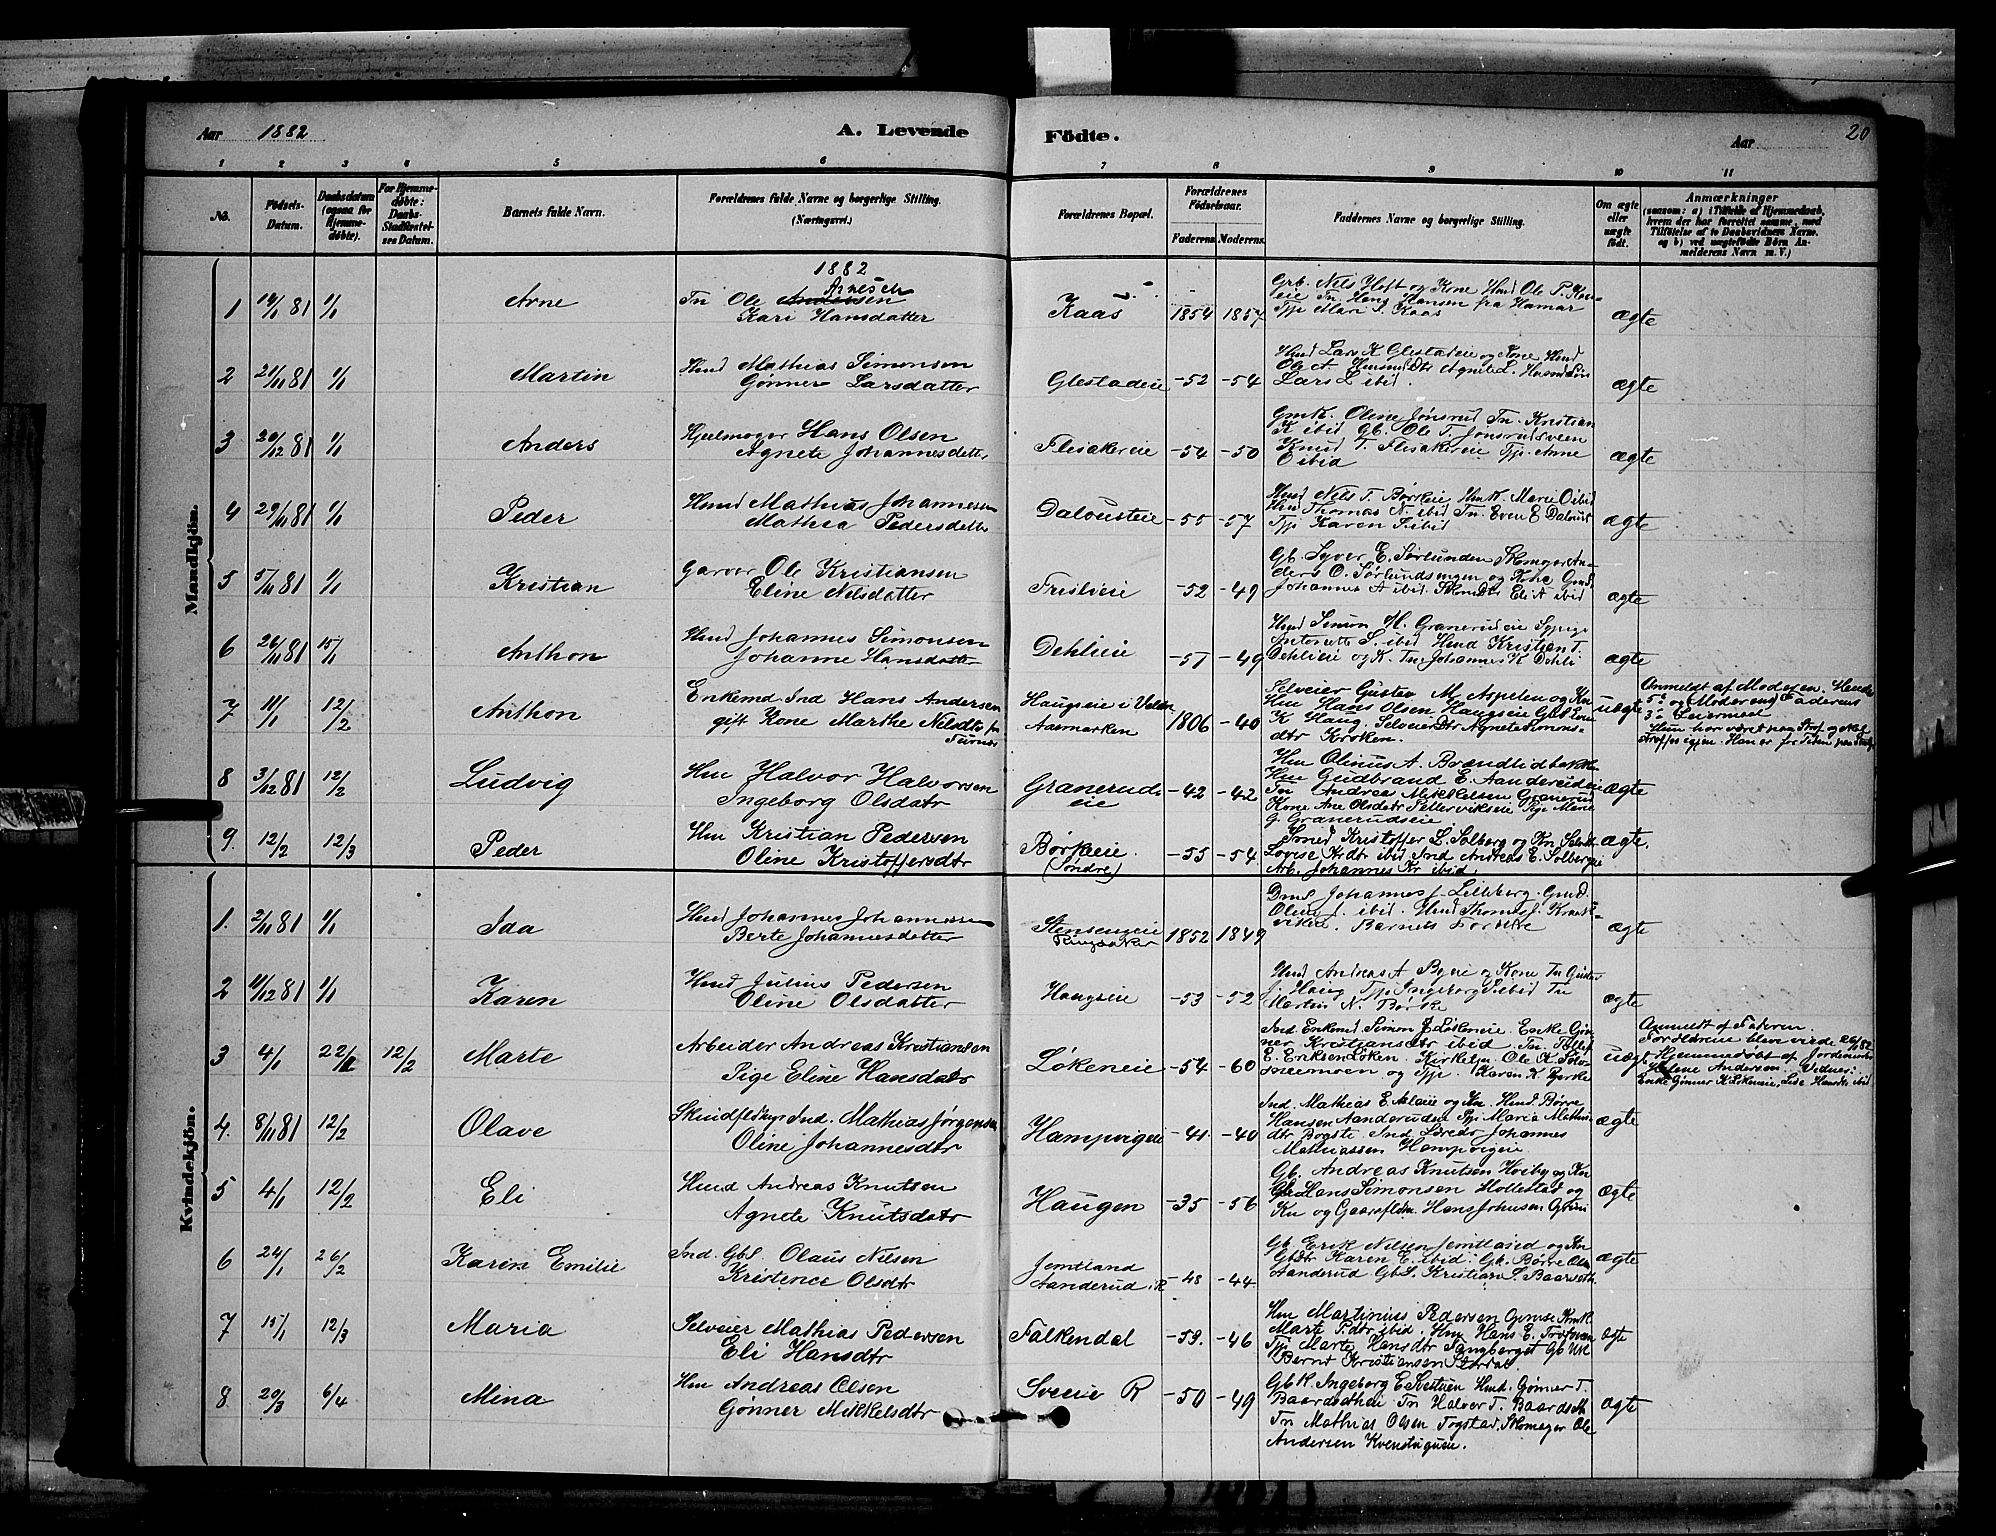 Aar 1882
A. Levende
Födte.
Aar
20
1 2 3 4 5 6 7 8 9 10 11
No.
Födsels-Datum.
Daabsdatum (ogsaa for Hjemmedøbte).
For Hjemmedøbte: Daabs-Stadfæstelses Datum.
Barnets fulde Navn.
Forældrenes fulde Navne og borgerlige Stilling. (Næringsvei.)
Forældrenes Bopæl.
Forældrenes Födselsaar.
Faderens. Moderens.
Faddernes Navne og borgerlige Stilling.
Om ægte eller uægte födt.
Anmærkninger
(saasom: a) i Tilfælde af Hjemmedaab, hvem der har forrettet samme, med Tilföielse af to Daabsvidners Navne, og b) ved uægtefödte Börn Anmelderens Navn m. V.)
Mandkjön.
1882
1 14/1 81 1/1 Arne
Tn Ole Andersen Arnesen
Kari Hansdatter
Kaas 1854 1857
Grb. Nils Hoft og Kone Hmd Ole P.
Tn Hans Hansen fra Hamar
Tpi Mari S. Kaas
ægte
2 21/11 81 1/1 Martin
Hmd Mathias Simonsen
Gønner Larsdatter
Glestadeie -52 -54
Hmd Lars K Glestadeie og Kone Hmd
Lars L ibid.
ægte
3 20/12 81 1/1 Anders
Hjulmager Hans Olsen
Agnete Johannesdatter
Flisakereie -54 -50
Gmk. Oline Jønsrud Tn. Kristian
K ibid Gb. Ole T. Jonsrudsveen
Knud T. Flisakereie Tpi. Anne
O ibid
ægte
4 29/11 81 1/1 Peder
Hmd Mathias Johannessen
Mathea Pedersdatter
Dalousteie -55 -57
Hmd Nils T. Børkeie Hmk. Marie O ibid
Hmd Thomas N. ibid Tn. Even E Daloust
Tpi Karen S. ibid
ægte
5 5/11 81 1/1 Kristian
Garver Ole Kristiansen
Eline Nilsdatter
Frislieie -52 -49
Gb. Syver E. Sørlunden Skomager An-
ders O. Sørlundsengen og Kone Gmd
Johannes A ibid. Eli A ibid
ægte
6 26/11 81 15/1 Anthon
Hmd Johannes Simonsen
Johanne Hansdatter
Dehlieie -51 -49
Hmd Simon M. Granerudeie Sypige
Antonette S. ibid Hmd Kristian T.
Dehlieie og K. Tn. Johannes K Dehli
ægte
7 11/1 12/2 Anthon
Enkemd Ind Hans Andersen
gift Kone Marthe Nilsdtr fr
Furnes
Haugseie i Valde
Aasmarken 1806 -40
Selveier Gustav M. Aspelien og Kn
Hm Hans Olsen Haugseie Gbs Lone
K Haug. Selveierdtr Agnete Simens-
dtr Kroken.
uægte
Anmeldt af Moderen. Hendes
5te og Moderens Faderens
3die Leiermaal
Hun har været paa Straf og skal
straffes igjen. Han er for Tiden paa Straf
8 3/12 81 12/2 Ludvig
Hm Halvor Halvorsen
Ingeborg Olsdatr
Granerud-
eie -42 -42
Hm Olinus A. Brændlidbakken
Hm Gudbrand E. Aanderudeie
Tn Andreas Mikkelsen Granerud
Kone Ane Olsdatr Sellervikseie Pige Marie
G. Granerudseie
ægte
9. 12/2 12/3 Peder
Hm Kristian Pedersen
Oline Kristoffersdtr
Børkeeie.
(Søndre) -55 -54
Smed Kristoffer L. Solberg og Kn
Lovise Krdtr ibid Ind Andreas E. Solbergeie
Arb. Johannes Kr ibid.
ægte.
Kvindekjön.
1. 2/11 81 1/1 Ida
Hmd Johannes Johannessen
Berte Johannesdatter
Stensengeie
Ringsaker 1852 1849
Johannes J. Lilleberg. Gmd.
Oline J. ibid. Hmd Thomas J.
Barnets Forældre
ægte
2 11/12 81 1/1 Karen
Hmd Julius Pedersen
Oline Olsdatter
Haugseie -53 -52
Hmd Andreas A Byeie og Kone Tn Gustav
J. Haug Tpi Ingeborg S. ibid Tn
Martin N. Børke
ægte
3 4/1 22/1 12/2 Marte
Arbeider Andreas Kristiansen
Pige Eline Hansdatr
Løkeneie -54 -60
Ind. Enkemd. Simon J. Løkeneie. Enke Gøn-
ner Kristiansdtr ibid. Tn. Tollef
E. Eriksen Løken. Kirkelsn. Ole A Solv-
sneemoen og Tpi. Karen K. Bjerke
uægt
Anmeldt af Faderen.
Forældrene blev viede 26/1 82
Hjemmedøbt af Jordemoder
Helene Andersen. Vidner:
Enke Gønner K Løkeneie, Lise Hansdtr ibid
4. 8/11 81 12/2 Olave
Mathias Jørgensen
Oline Johannesdtr
Hampvigeie -41. -40
Ind. Mathias E. og Kn. Hmd Børre
Hansen Aanderuden Tpi Maria Mathis-
dtr Bogste. Ind. Johannes
Mathiassen Hampvigeie
ægte
5 4/1 12/2 Eli
Hmd Andreas Knutsen
Agnete Knutsdatr
Haugen -35 -56
Gb. Andreas Knutsen Høiby og Kn
Hans Simonsen Hollestad og
Kn og Hans Johnsen
ægte
6 24/1 26/2 Karen Emilie
Ind. Gbs. Olaus Nilsen
Kristence Olsdtr
Jemtland
Aanderud i R -48 -44
Gb. Erik Nilsen Jemtland og Kn
Gbdtr Karen E. ibid. Gb. Børre Olsen
Aanderud Gbs. Kristian S. Baarseth
ægte
7 15/1 12/3 Maria
Selveier Mathias Pedersen
Eli Hansdtr
Falkendal -59. -46
Hm Martinius Pedersen
Marte P.dtr ibid. Hm Hans E.
Tpi Marte Hansdtr Fangberget
Bernt Kristiansen Stordal
ægte
8 20/3 6/4 Mina
Hm Andreas Olsen
Gønner Mikkelsdtr
Sveeie R -50 -49
Gbk. Ingeborg E. Hmd. Gønner T.
Baardsetheie Tn Halvor T. Baardseth
Tn Mathias Olsen Fogstad, Skomager Ole
Andersen Kvenstugueie.
ægte